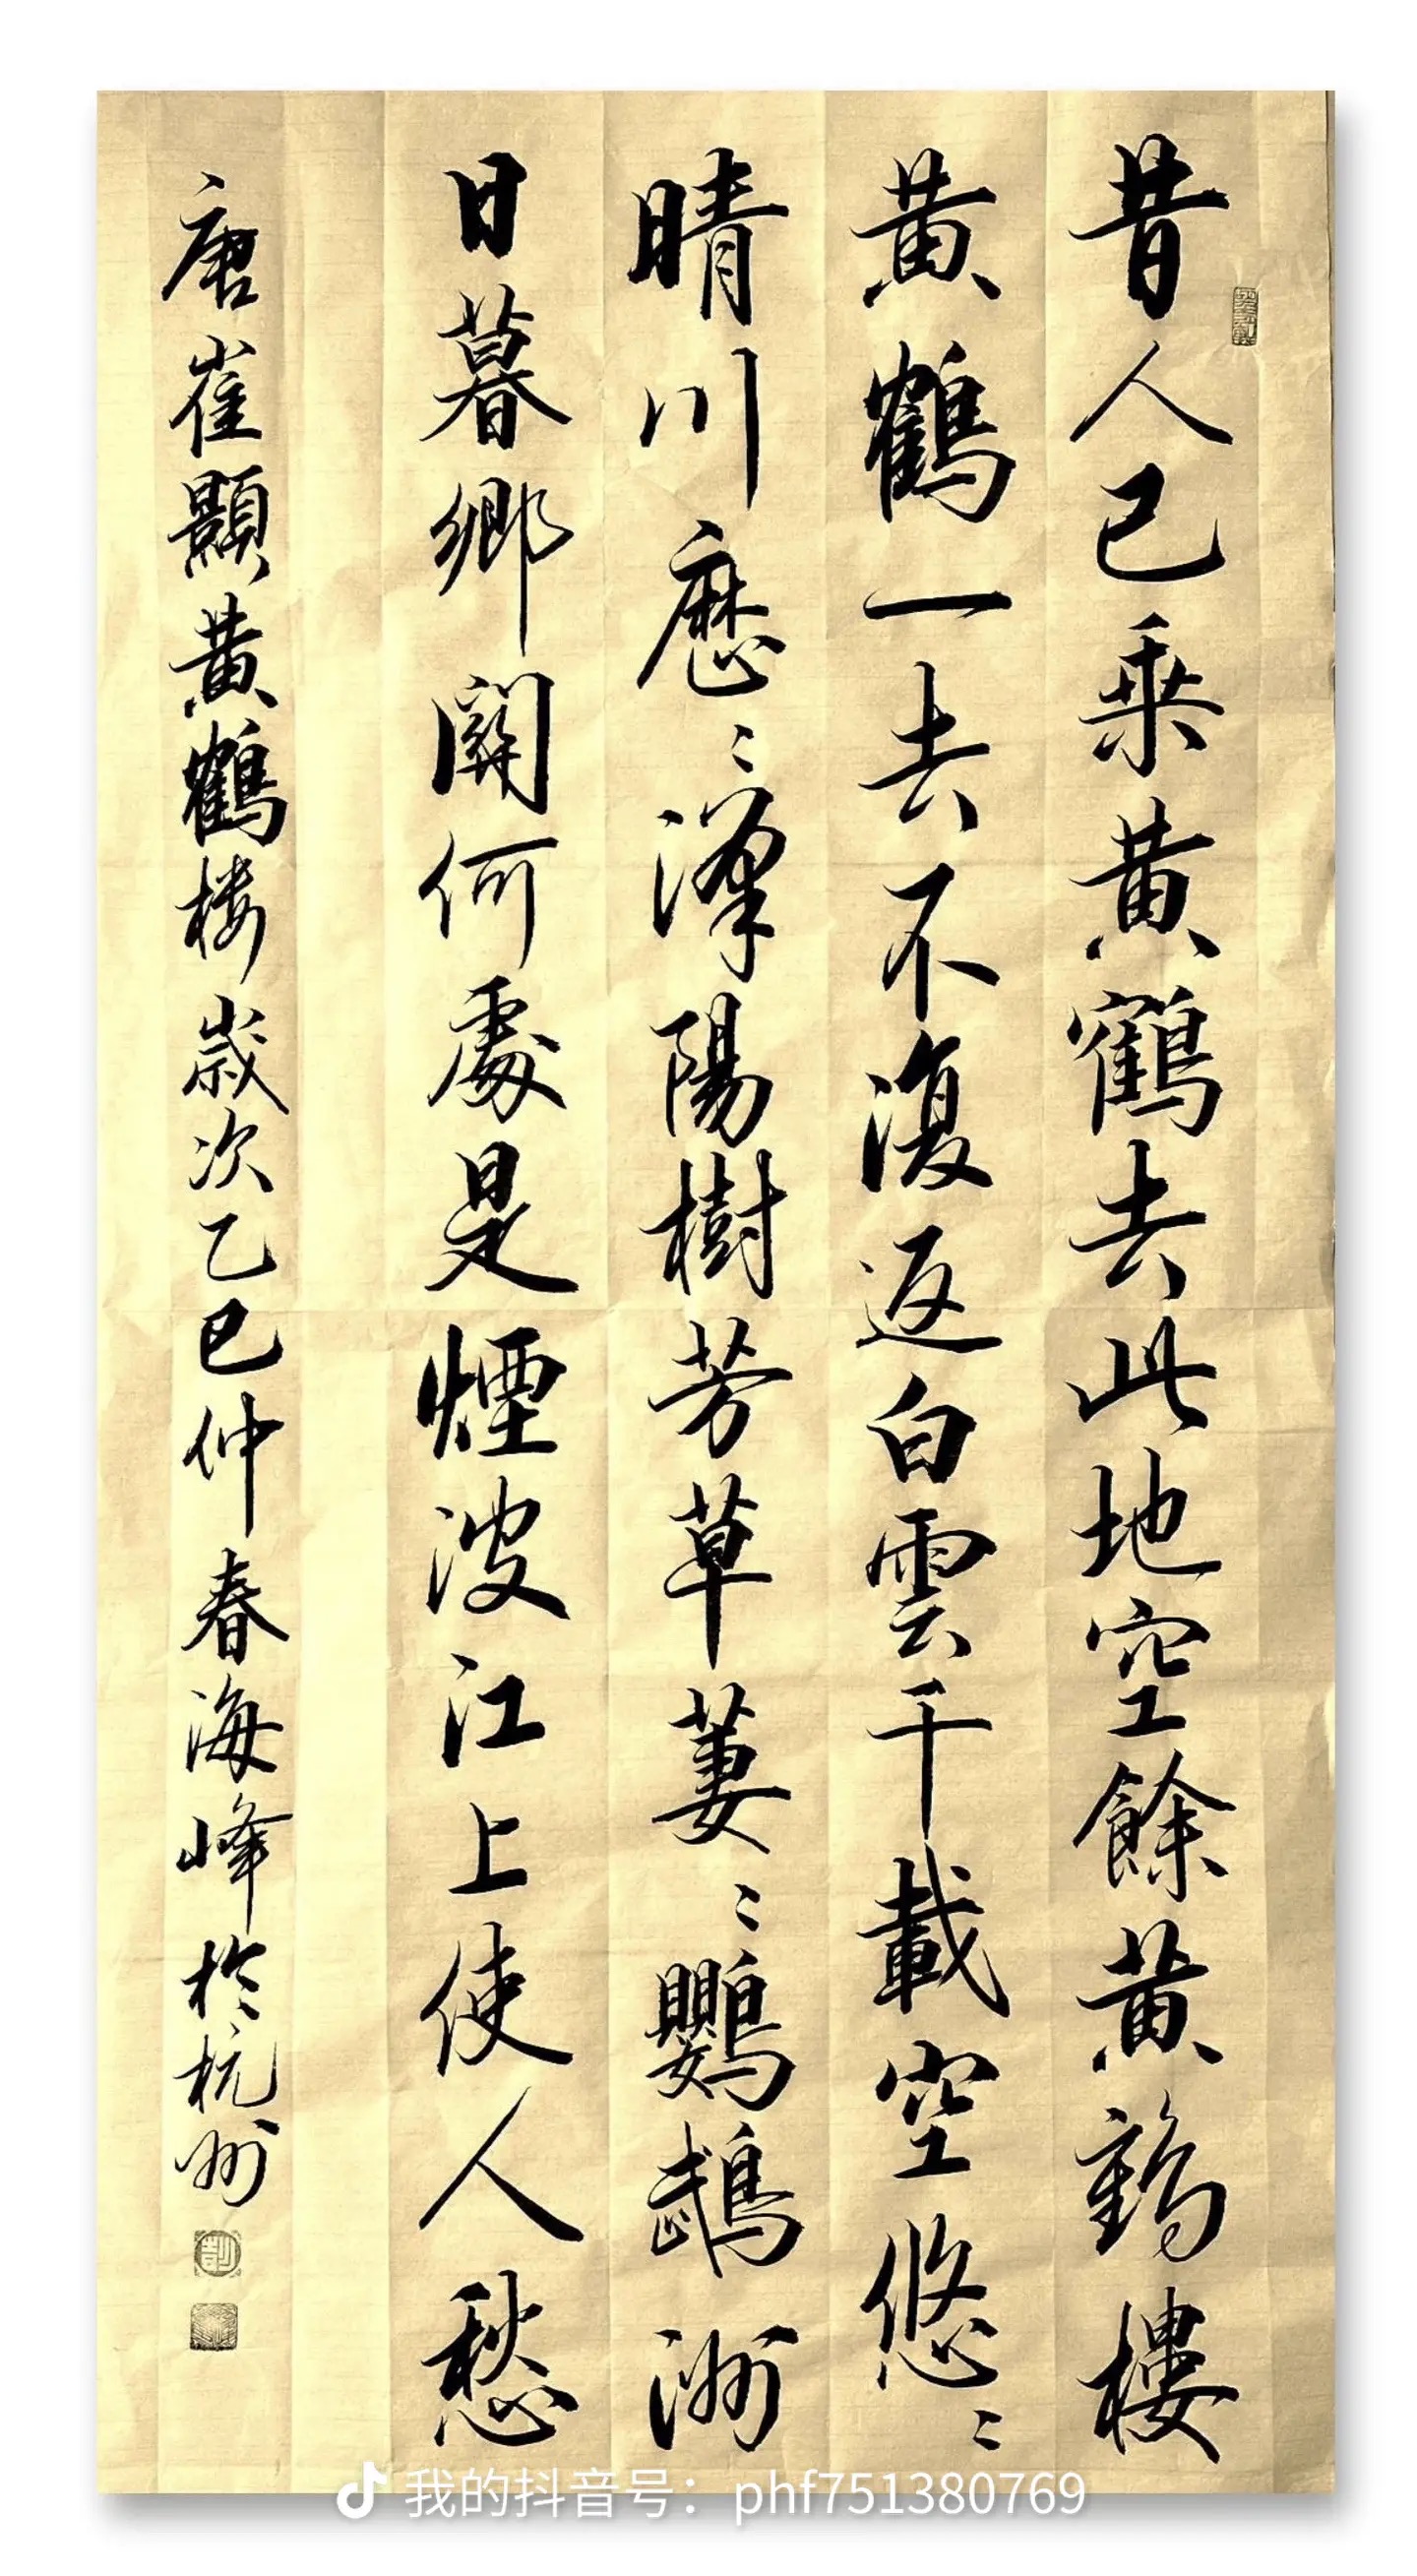 昔人已乘黄鶴去此地空餘黄鶴樓
黄鶴一去不復返白雲千載空悠〻
晴川歷〻漢陽樹芳草萋〻鸚鵡洲
日暮鄉關何處是煙波江上使人愁
唐崔顥黄鶴楼歲次乙巳仲春海峰於杭州
我的抖音号：phf751380769